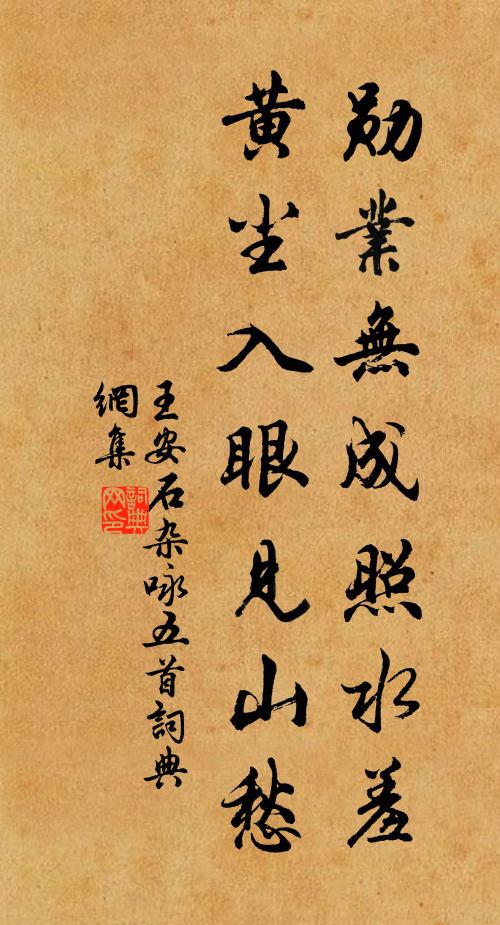 勛業無成照水羞
黄尘入眼見山愁
王安石杂咏五首詞典
網集
詞典網印